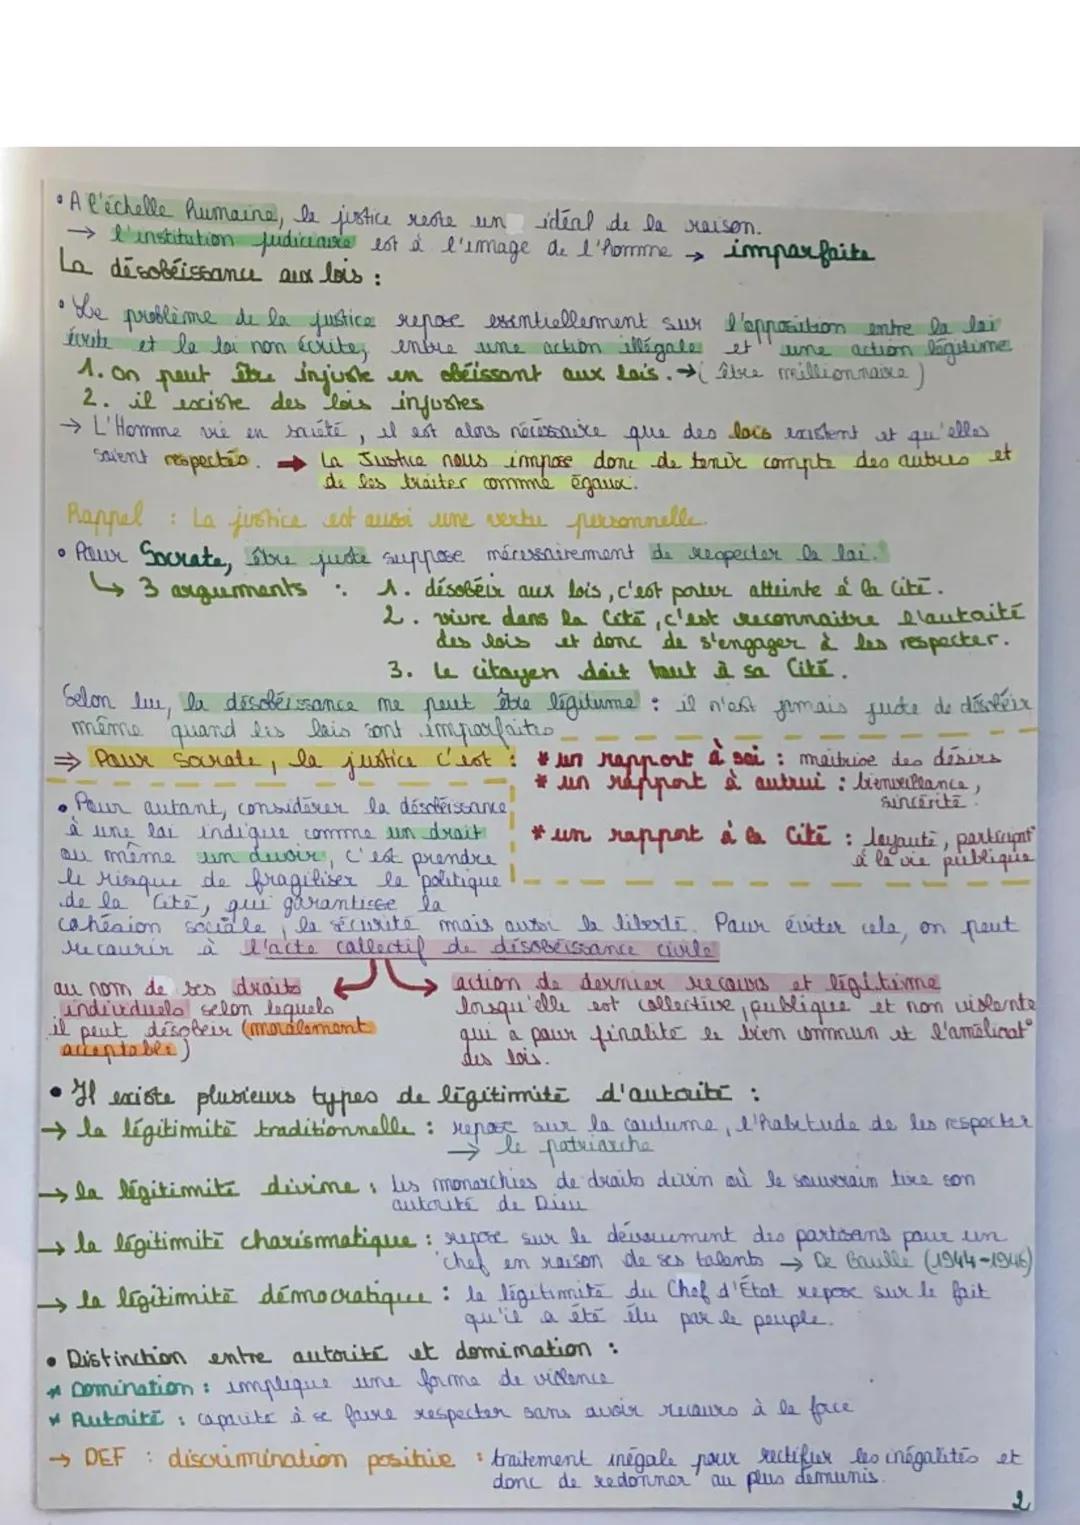 • A l'échelle humaine, la justice reste un idéal de la raison.
→ l'institution judiciaire est à l'image de l'homme → imparfaite
La désobéissance aux lois :
• Le problème de la justice repose essentiellement sur l'opposition entre la loi
écrite et la loi non écrite, entre une action illégale et une action légitime
1. on peut être injuste en obéissant aux lois. → (être millionnaire)
2. il existe des lois injustes
→ L'Homme vie en société, il est alors nécessaire que des lois existent et qu'elles
soient respectés. → La Justice nous impose donc de tenir compte des autres et
de les traiter comme égaux.
Rappel : La justice est aussi une vertu personnelle.
• Pour Socrate, être juste suppose nécessairement de respecter la loi.
↳ 3 arguments : 1. désobéir aux lois, c'est porter atteinte à la Cité.
2. vivre dans la Cité, c'est reconnaître l'autorité
des lois et donc de s'engager à les respecter.
3. le citoyen doit tout à sa Cité.
Selon lui, la désobéissance ne peut être légitime : il n'est jamais juste de désobéir
même quand les lois sont imparfaites.
⇒ Pour Socrate, la justice c'est : * un rapport à soi : maîtrise des désirs
* un rapport à autrui : bienveillance,
sincérité.
* un rapport à la Cité : loyauté, participat°
à la vie publique
• Pour autant, considérer la désobéissance
à une loi indique comme un droit
ou même un devoir, c'est prendre
le risque de fragiliser le politique
de la Cité, qui garantisse la
cohésion sociale, la sécurité mais aussi la liberté. Pour éviter cela, on peut
recourir à l'acte collectif de désobéissance civile
au nom de ses droits
individuels selon lequels
il peut désobéir (moralement
acceptable)
action de dernier recours et légitime
lorsqu'elle est collective, publique et non violente
qui a pour finalité le bien commun et l'améliorat°
des lois.
• Il existe plusieurs types de légitimité d'autorité :
→ la légitimité traditionnelle : repose sur la coutume, l'habitude de les respecter
→ le patriarche
→ la légitimité divine : les monarchies de droits divin où le souverain tire son
autorité de Dieu
→ la légitimité charismatique : repose sur le dévouement des partisans pour un
chef en raison de ses talents → De Gaulle (1944-1946)
→ la légitimité démocratique : la légitimité du Chef d'État repose sur le fait
qu'il a été élu par le peuple.
• Distinction entre autorité et domination :
* Domination : implique une forme de violence
* Autorité : capacité à se faire respecter sans avoir recours à la force
→ DEF : discrimination positive : traitement inégale pour rectifier les inégalités et
donc de redonner au plus démunis.
2